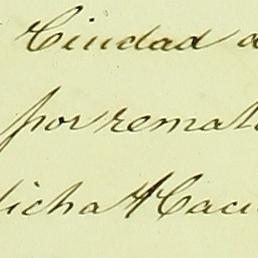 Ciudad d
por remat
dicha Haci